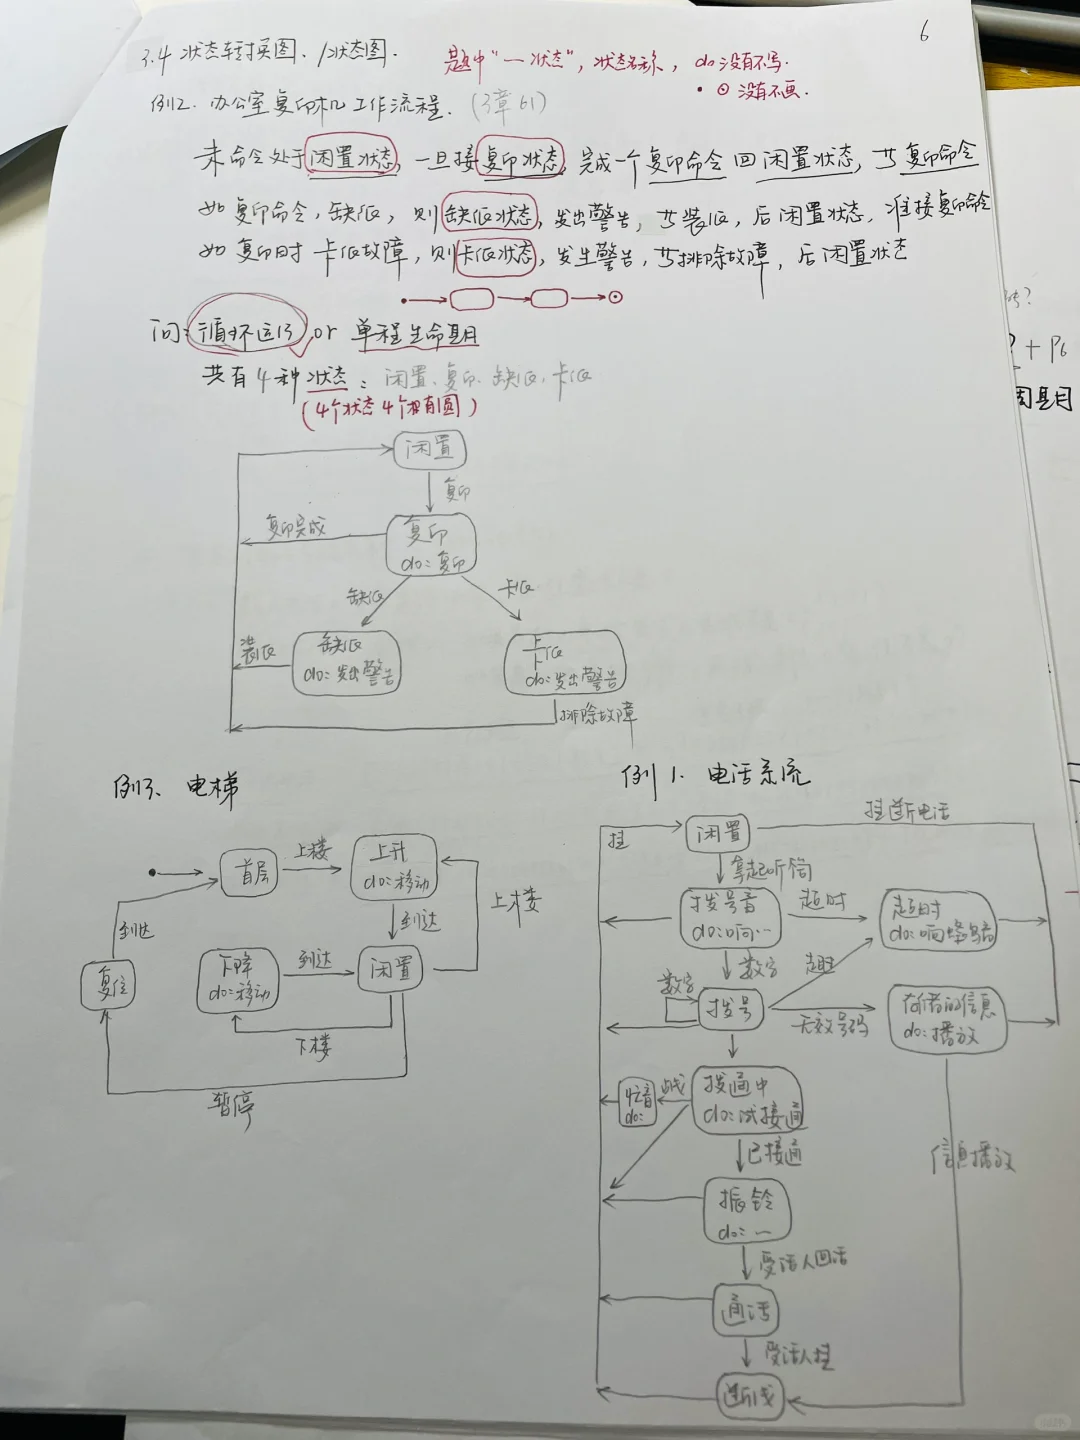 6
3.4 状态转换图、/状态图.
题中"一状态"，状态名称，do没有不写.
• ⊙ 没有不画.
例2. 办公室复印机工作流程.（3章61）
未命令处于闲置状态，一旦接复印状态，完成一个复印命令回闲置状态，等复印命令
如复印命令，缺纸，则缺纸状态，发出警告，等装纸，后闲置状态，准接复印命令
如复印时卡纸故障，则卡纸状态，发生警告，等排除故障，后闲置状态
问：循环运行 or 单程生命期
共有4种状态：闲置、复印、缺纸、卡纸
（4个状态4个椭圆）
闲置
复印
复印完成
复印
do：复印
缺纸
卡纸
装纸
缺纸
do：发出警告
卡纸
do：发出警告
排除故障
例3、电梯
首层
上楼
上升
do：移动
到达
到达
上楼
复位
下降
do：移动
到达
闲置
下楼
暂停
例1. 电话系统
挂
闲置
挂断电话
拿起听筒
拨号音
do：响…
超时
超时
do：响蜂鸣音
数字
数字
超时
拨号
无效号码
do：播放
忙音
do：
拨通中
do：试接通
已接通
信息播放
振铃
do：…
受话人回话
通话
受话人挂
断线
+ P6
周期